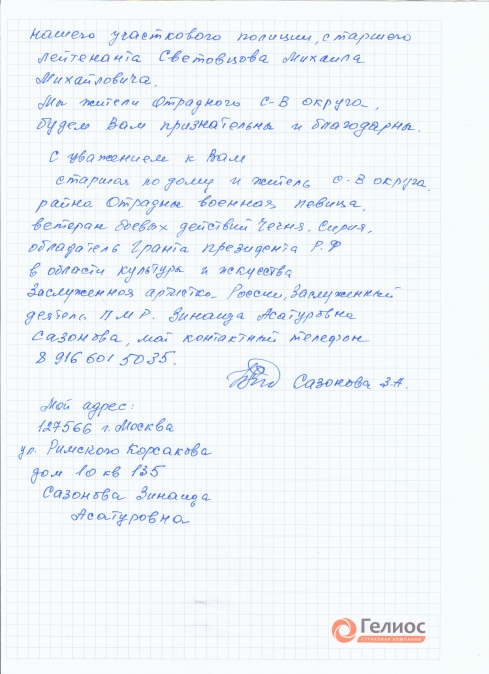 нашего участкового полиции, старшего
лейтенанта Световцова Михаила
Михайловича.
Мы жители Отрадного С-В округа,
будем Вам признательны и благодарны.
С уважением к Вам
старшая по дому и житель С-В округа,
райна Отрадны военная певица,
ветеран боевых действий Чечня, Сирия,
обладатель Гранта президента Р.Ф
в области культуры и искуества
Заслуженная артистка России, Заслуженный
деятель П.М.Р. Зинаида Асатуровна
Сазонова, мой контактный телефон
8 916 601 50 35.
Сазонова З.А.
Мой адрес:
127566 г. Москва
ул. Римского Корсакова
дом 10 кв 135
Сазонова Зинаида
Асатуровна
Гелиос
СТРАХОВАЯ КОМПАНИЯ